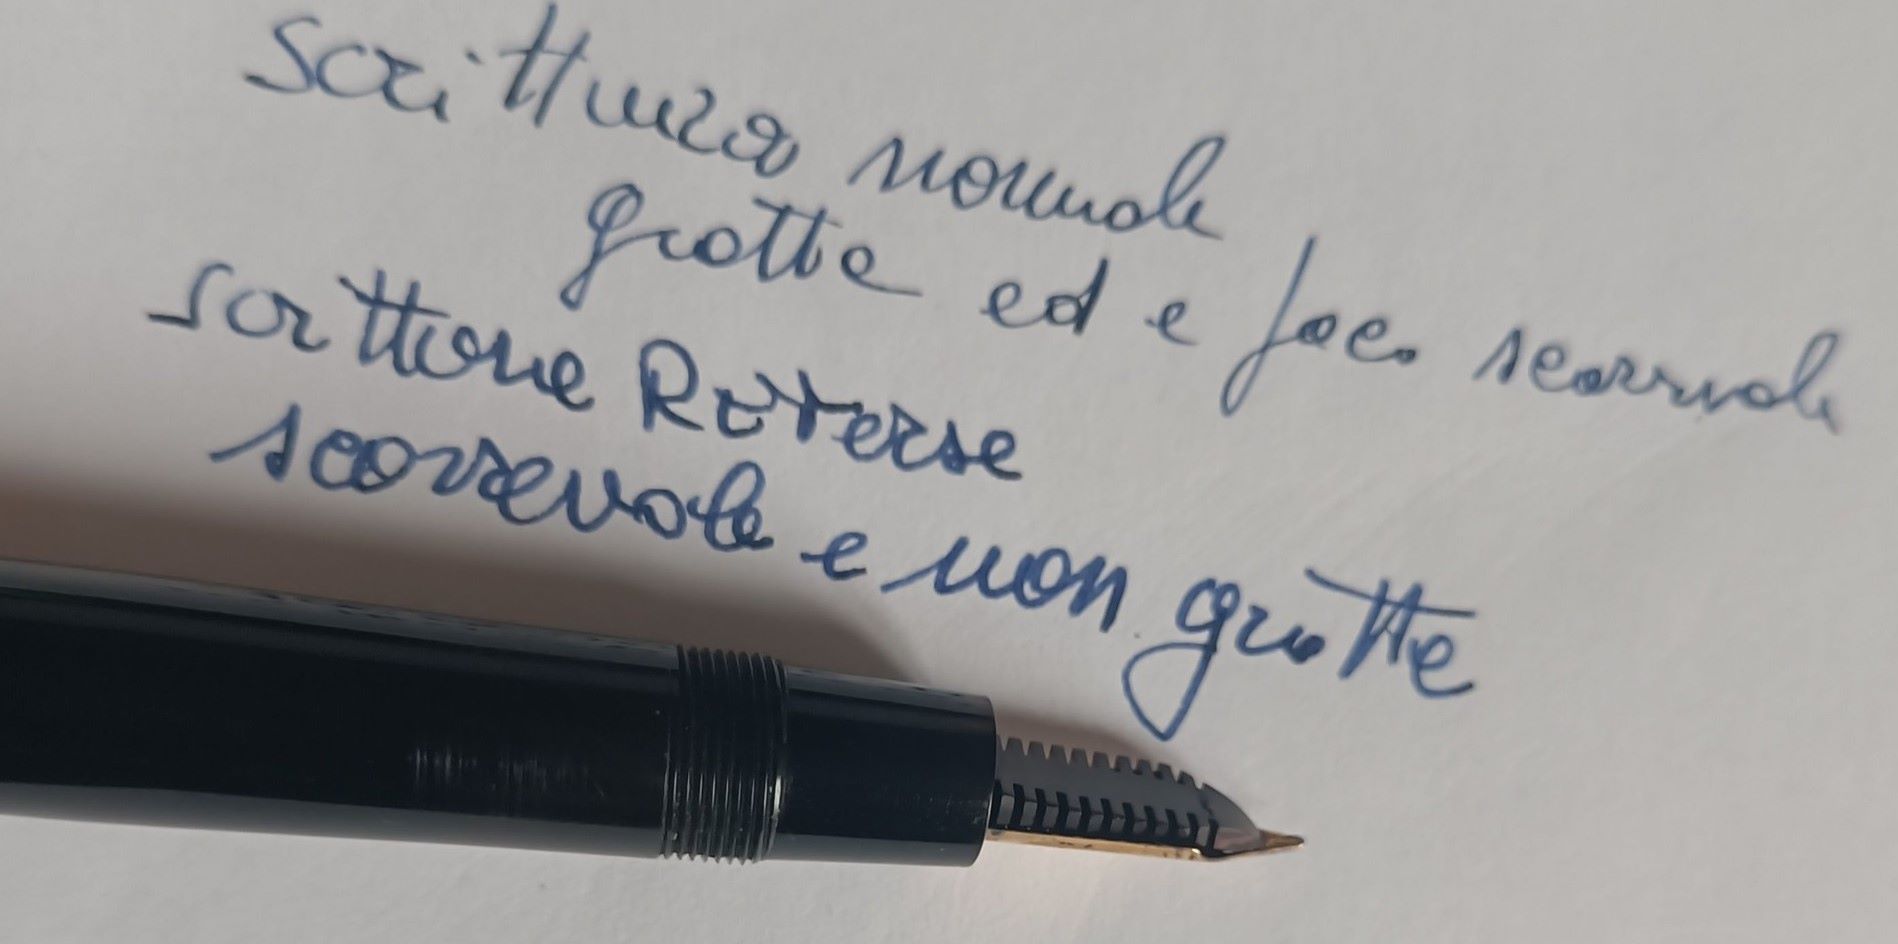 scrittura normale
gratta ed e poco scorrevole
scrittura Reverse
scorrevole e non gratta